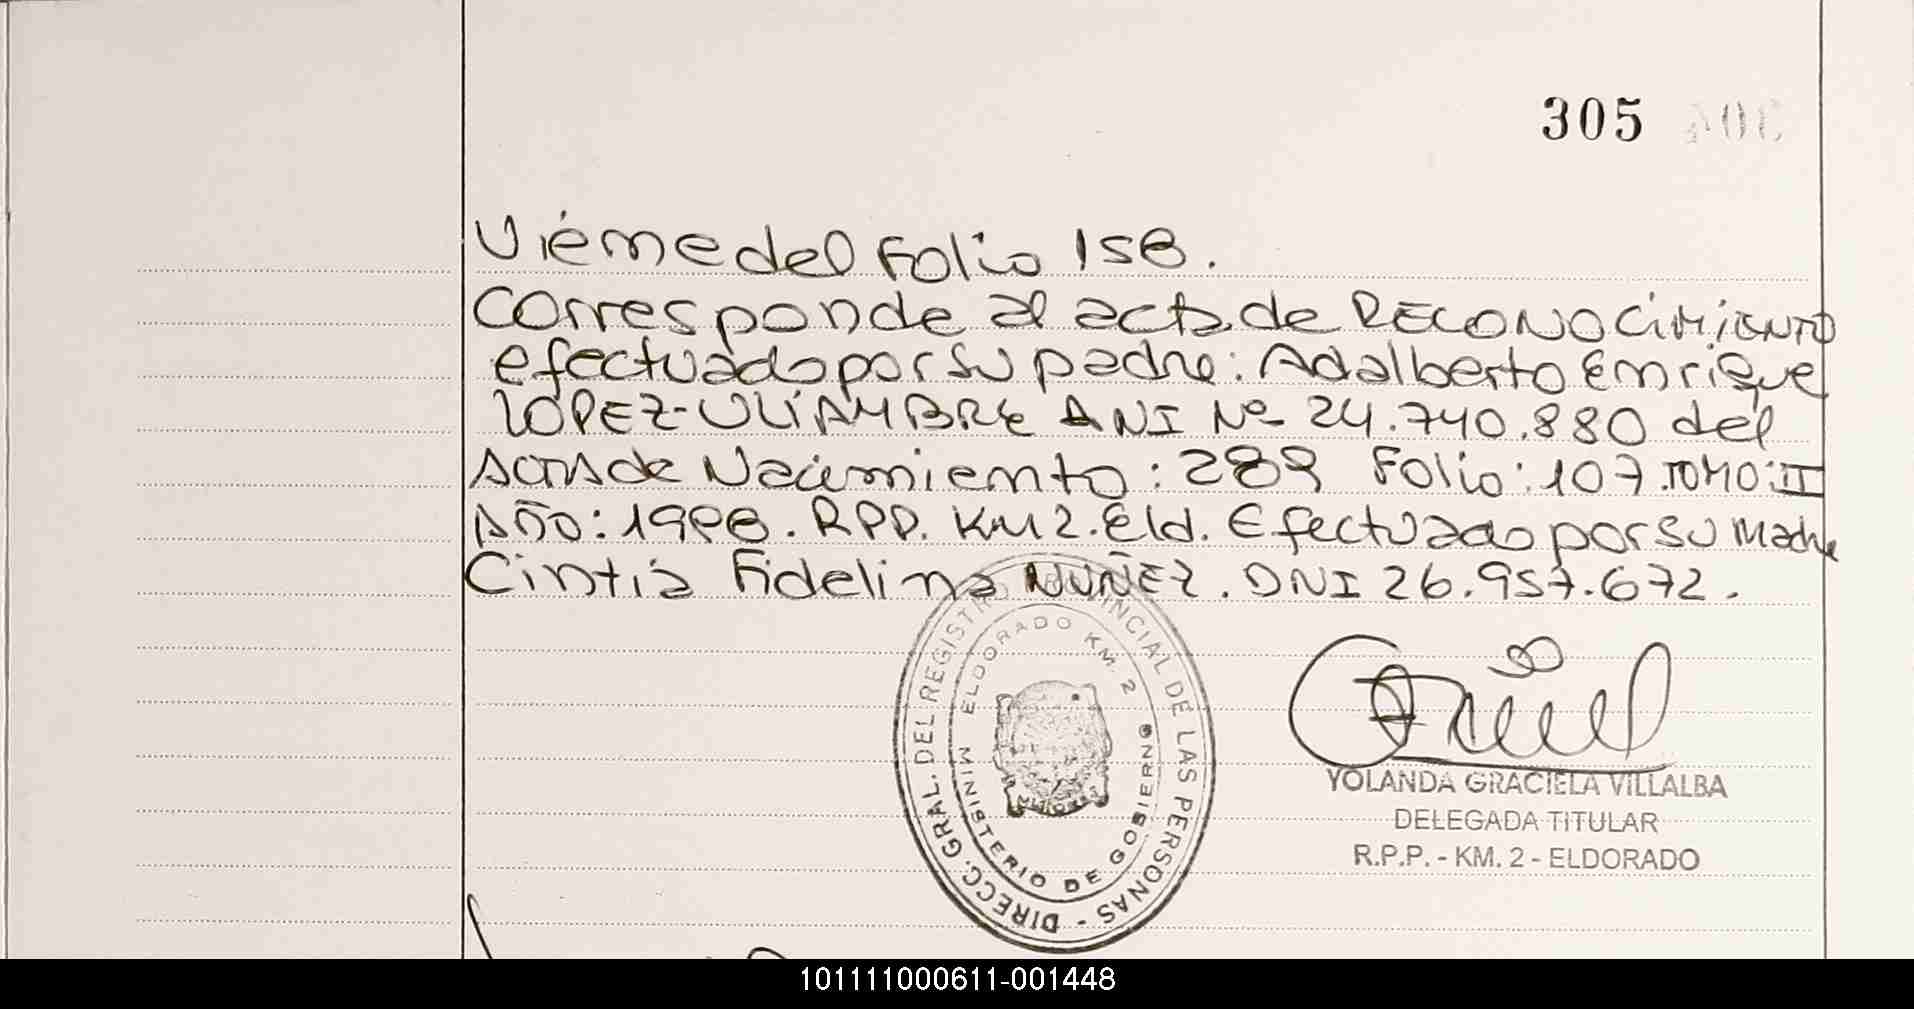 305
Viene del Folio 158.
Corresponde al acta de RECONOCIMIENTO
efectuado por su padre: Adalberto Enrique
LOPEZ-VILIAMBRE DNI Nº 24.740.880 del
Acta de Nacimiento: 289 Folio: 107 TOMO: II
AÑO: 1998. RPP. KM 2. Eld. Efectuado por su Madre
Cintia Fidelina NUÑEZ. DNI 26.957.672.
DIRECC. GRAL. DEL REGISTRO PROVINCIAL DE LAS PERSONAS -
ELDORADO KM. 2
MINISTERIO DE GOBIERNO
YOLANDA GRACIELA VILLALBA
DELEGADA TITULAR
R.P.P. - KM. 2 - ELDORADO
101111000611-001448